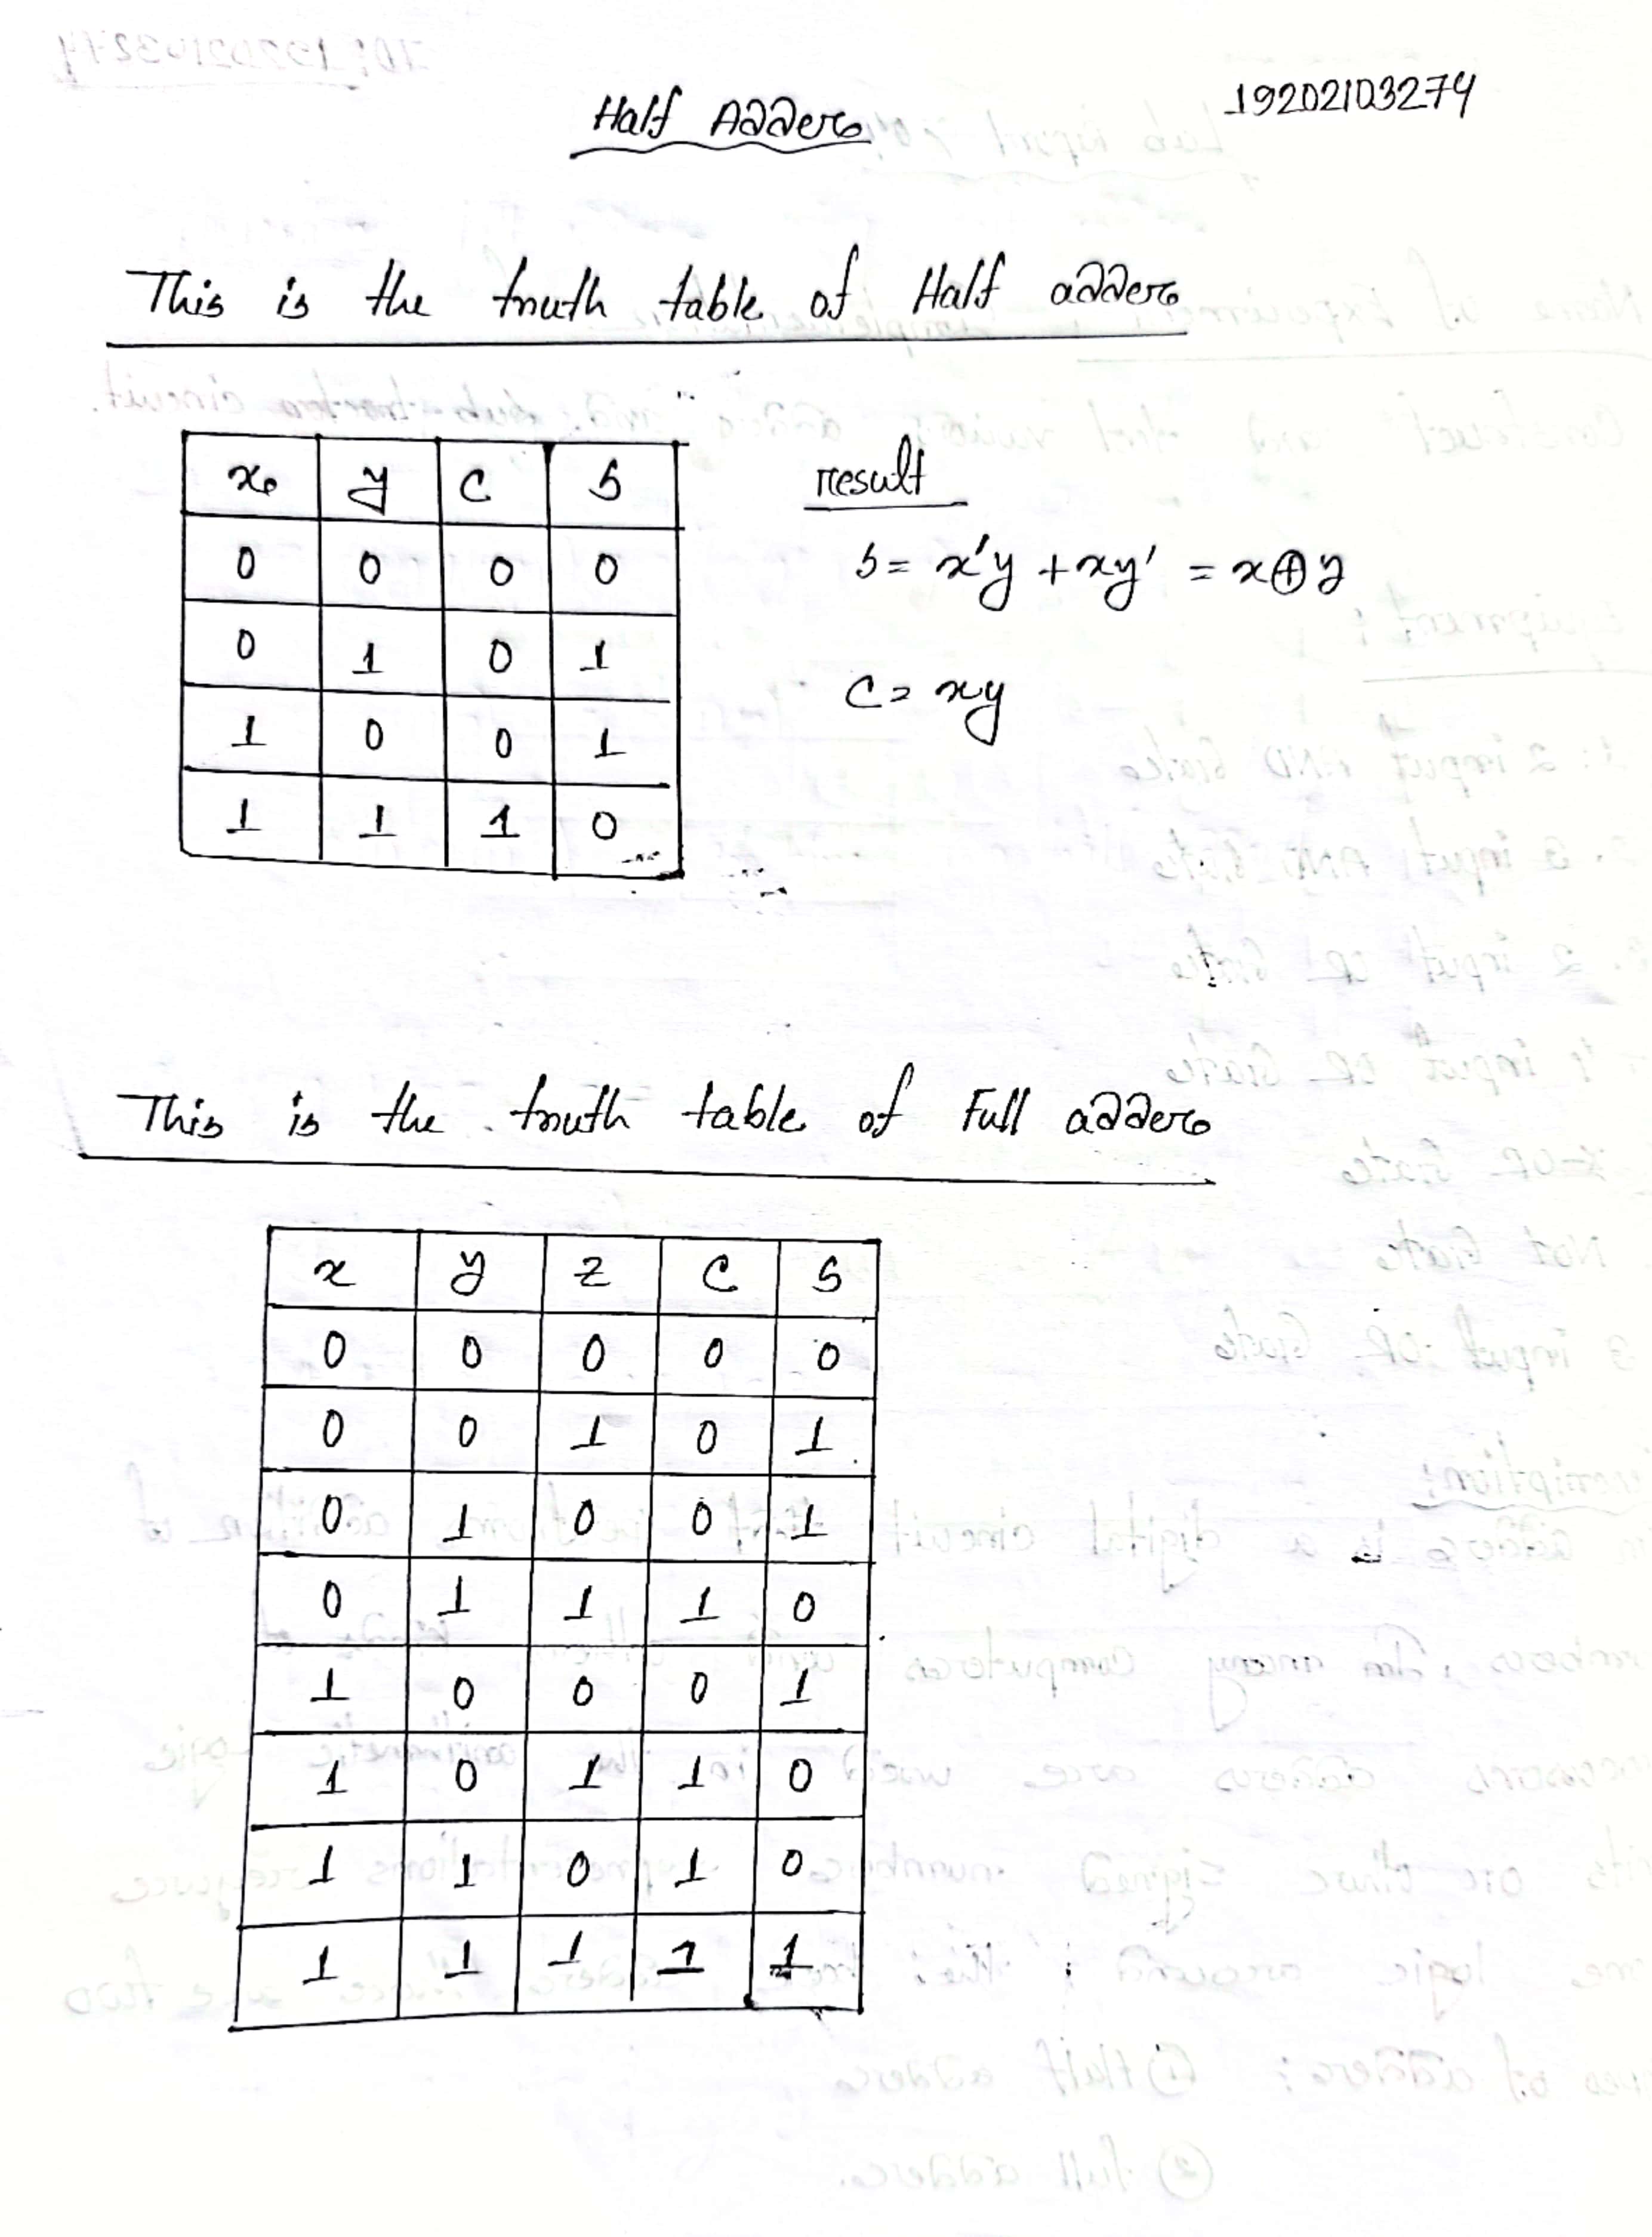 19202103274
Half Adder
This is the truth table of Half adder
x y c s
0 0 0 0
0 1 0 1
1 0 0 1
1 1 1 0
result
s = x'y + xy' = x⊕y
c = xy
This is the truth table of Full adder
x y z c s
0 0 0 0 0
0 0 1 0 1
0 1 0 0 1
0 1 1 1 0
1 0 0 0 1
1 0 1 1 0
1 1 0 1 0
1 1 1 1 1